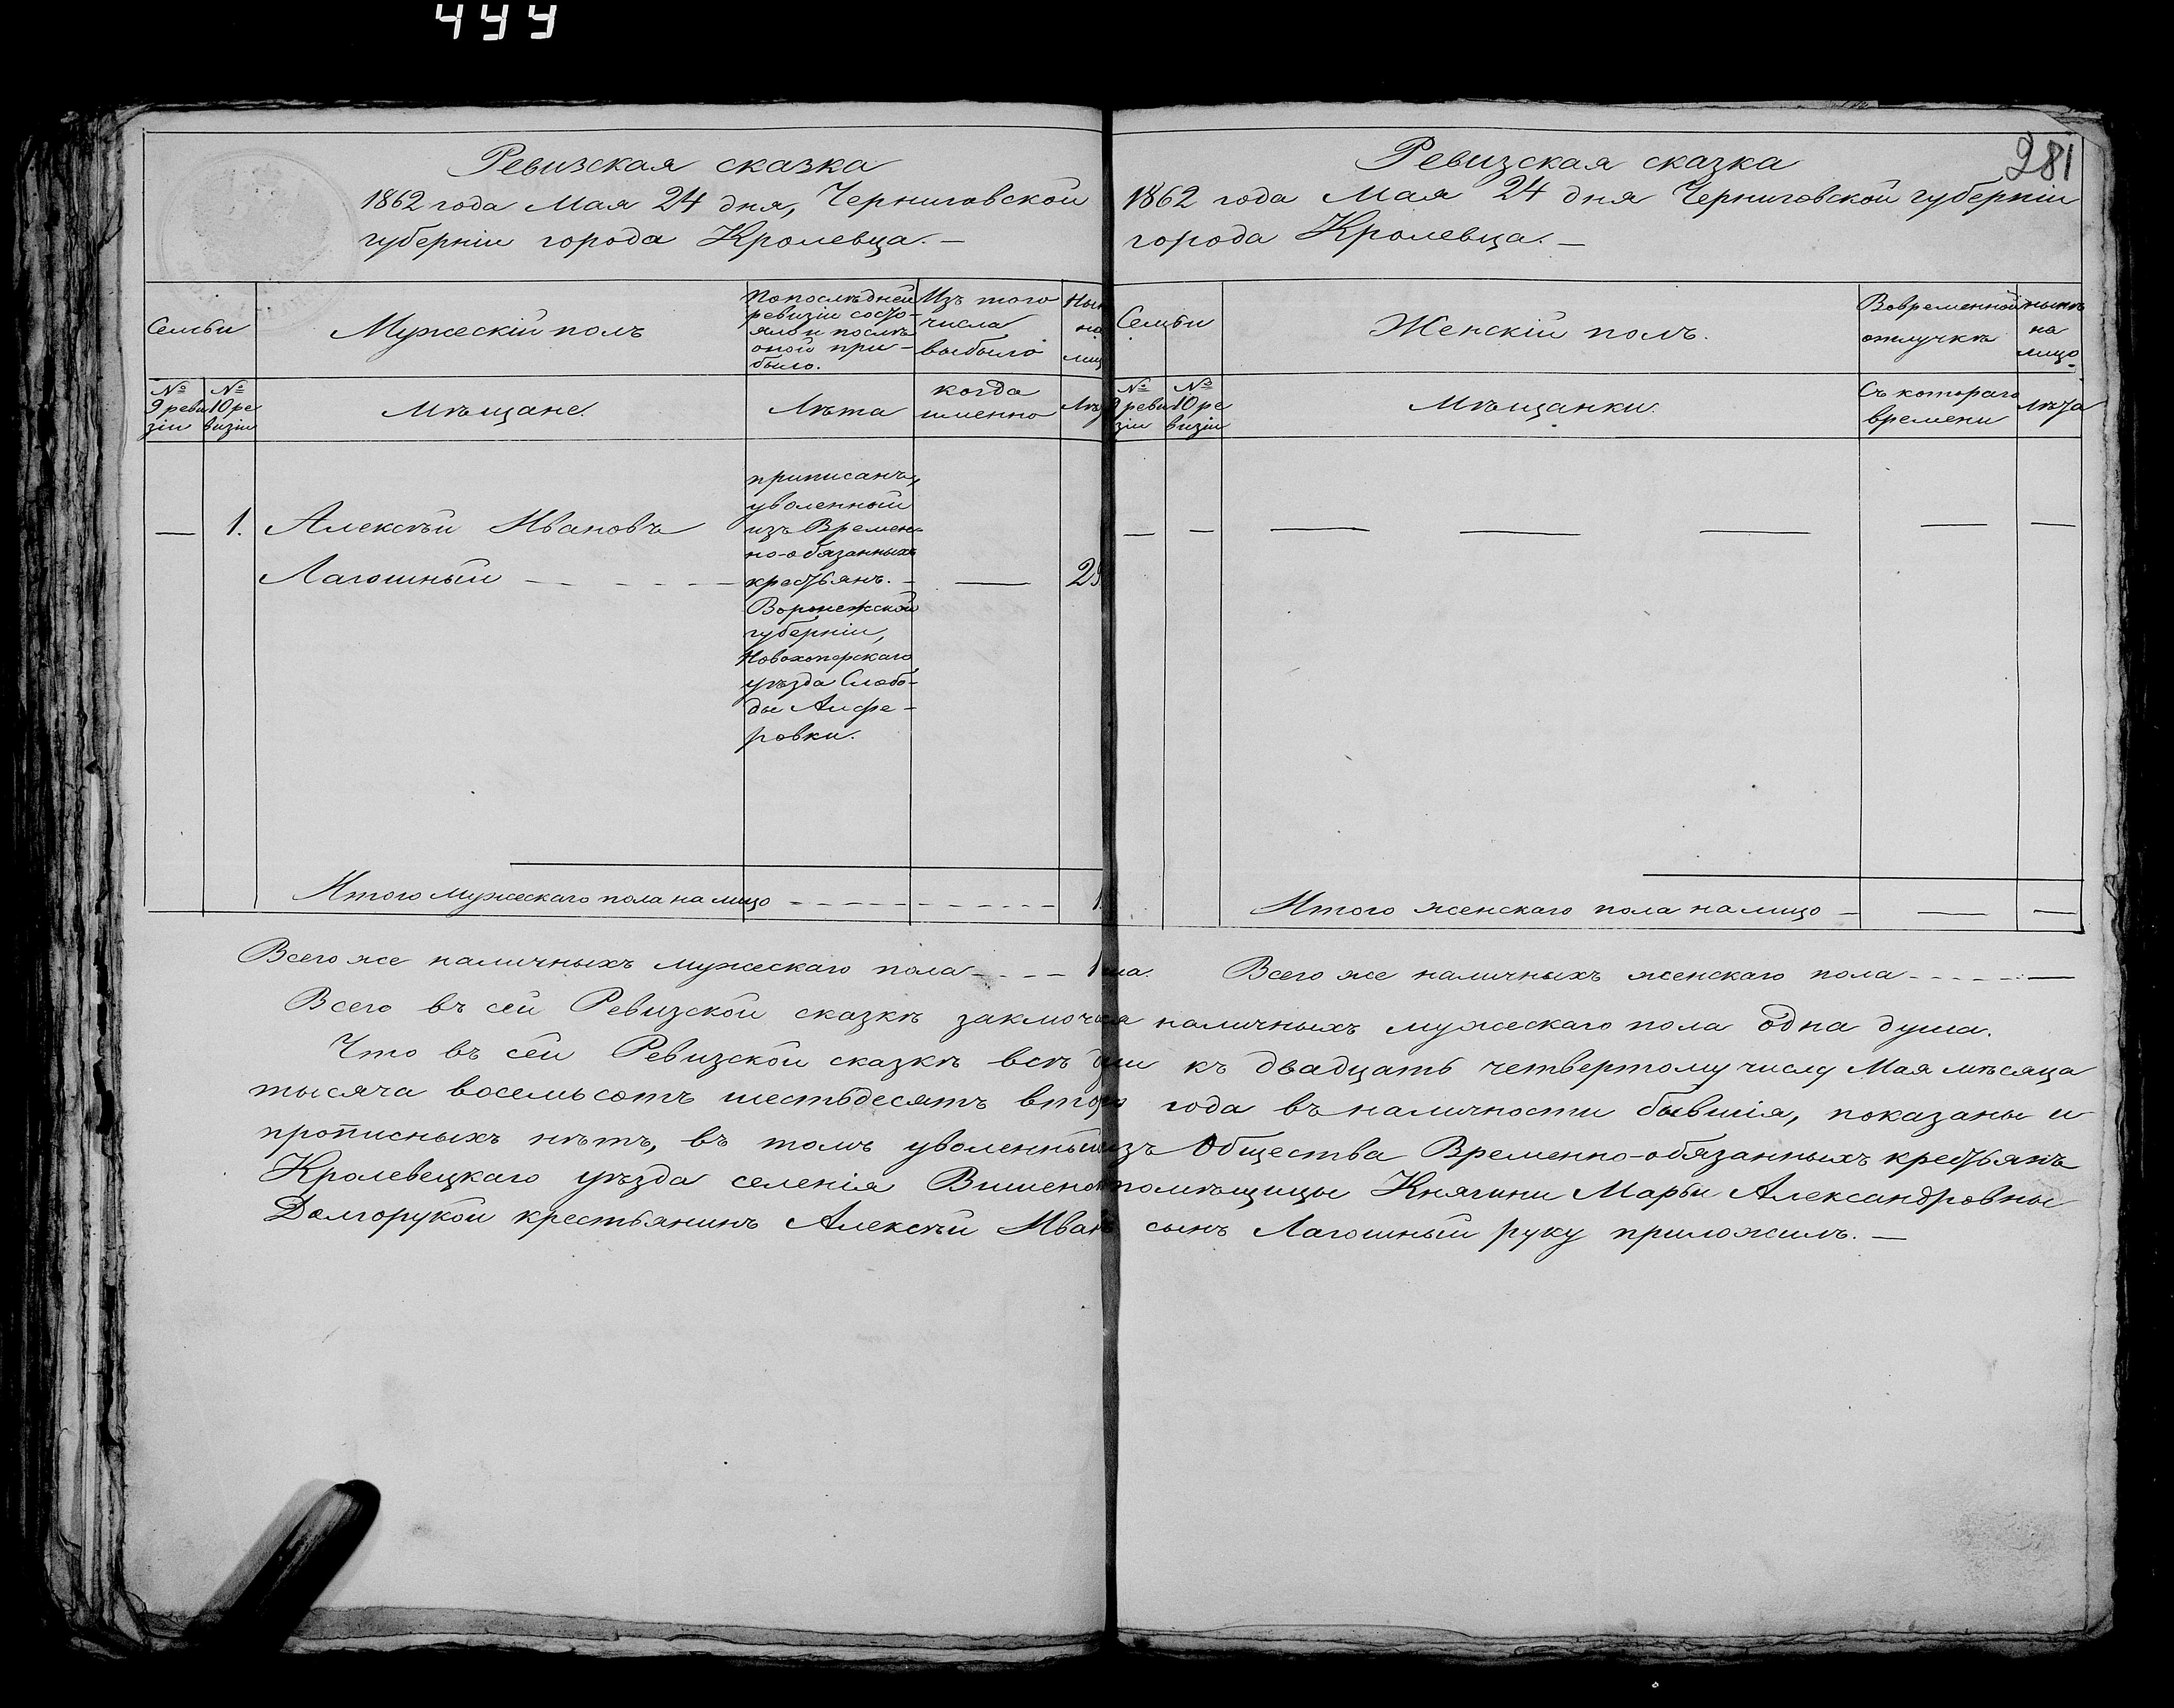 499
Ревизская сказка
1862 года Мая 24 дня, Черниговской
губерніи города Кролевца. —
Семьи
Мужескій полъ
По послѣдней
ревизіи состо-
яло и послѣ
оной при-
было.
Изъ того
числа
выбыло
Нын
на
лиц
№
9 реви
зіи
№
10 ре
визіи
Мѣщане.
Лѣта
когда
именно
Лѣт
— 1. Алексѣй Ивановъ
Лагошный — — — — — — — 29
приписанъ,
уволенный
изъ Времен-
но-обязанныхъ
крестьянъ. -
Воронежской
губерніи,
Новохоперскаго
уѣзда Слобо-
ды Алфе-
ровки.
Итого мужескаго пола на лицо - - - - - - - - - - 1
281
Ревизская сказка
1862 года Мая 24 дня Черниговской губерніи
города Кролевца. —
Семьи
Женскій полъ.
Вовременной
отлучкѣ
нынѣ
на
лицо
№
9 реви
зіи
№
10 ре
визіи
Мѣщанки.
Съ котораго
времени
Лѣта
— — — — — — —
Итого женскаго пола на лицо — — —
Всего же наличныхъ мужескаго пола - - - - 1 ша. Всего же наличныхъ женскаго пола - - - - - —
Всего въ сей Ревизской сказкѣ заключа я наличныхъ мужескаго пола одна душа.
Что въ сей Ревизской сказкѣ всѣ ши къ двадцать четвертому числу Мая мѣсяца
тысяча восемьсотъ шестьдесятъ второ года въ наличности бывшія, показаны и
прописныхъ нѣтъ, въ томъ уволенный изъ Общества Временно-обязанныхъ крестьянъ
Кролевецкаго уѣзда селенія Вишенок помѣщицы Княгини Марьи Александровны
Долгорукой крестьянинъ Алексѣй Иван сынъ Лагошный руку приложилъ. —